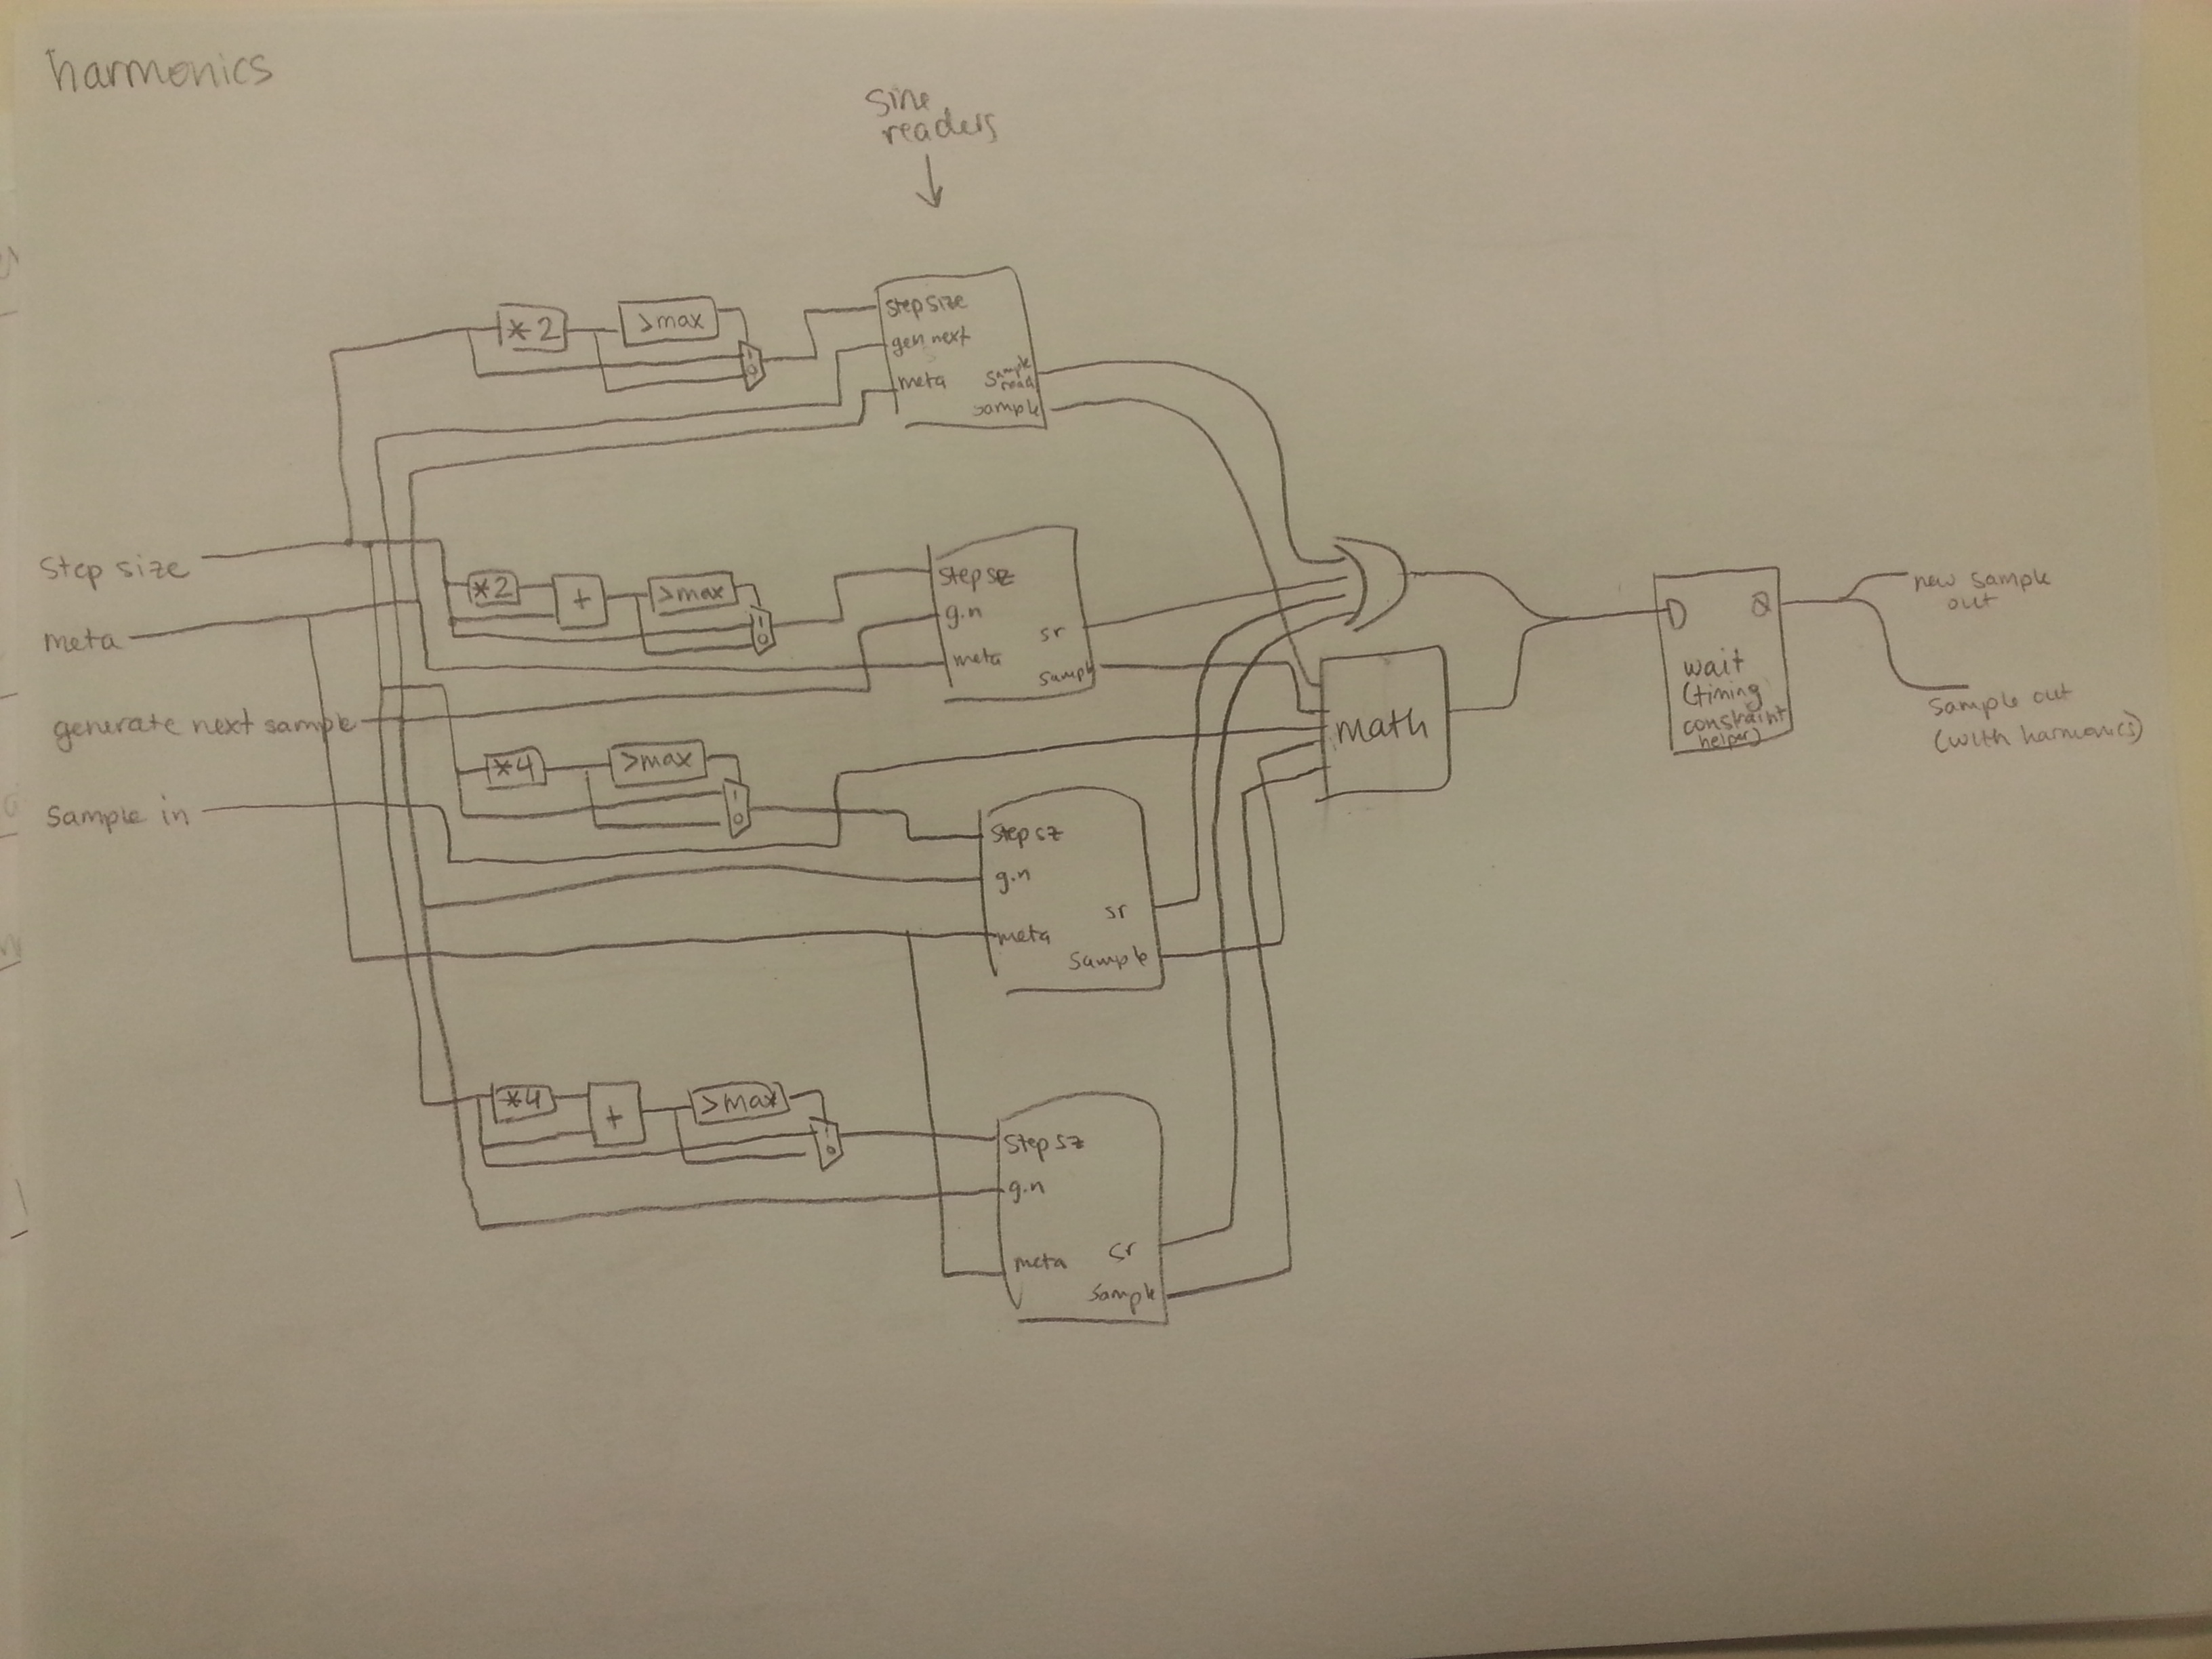 harmonics
Sine
readers
*2
>max
1
0
step size
gen next
meta
sample
read
sample
step size
meta
generate next sample
sample in
*2
+
>max
1
0
step sz
g.n
meta
sr
sample
*4
>max
1
0
step sz
g.n
meta
sr
sample
*4
+
>max
1
0
step sz
g.n
meta
sr
sample
math
D
Q
wait
(timing
constraint
helper)
new sample
out
sample out
(with harmonics)